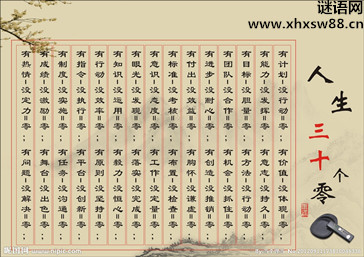 谜语网
www.xhxsw88.cn
人生三十个零
有计划=没行动=零
有能力=没发挥=零
有目标=没胆量=零
有团队=没合作=零
有进步=没耐心=零
有付出=没效益=零
有标准=没考核=零
有意识=没
有眼光=没
有知识=没运用=零
有行动=没效率=零
有指令=没执行=零
有制度=没实施=零
有成绩=没激励=零
有热情=没定力=零
有价值=没体现=零
有意志=没持久=零
有方法=没行动=零
有机会=没
有创造=没推销=零
有胸怀=没谦虚=零
有布置=没检查=零
有工作=没定量=零
有落实=没完成=零
有毅力=没恒心=零
有原则=没坚持=零
有平台=没创新=零
有任务=没沟通=零
有舞台=没出色=零
有问题=没解决=零